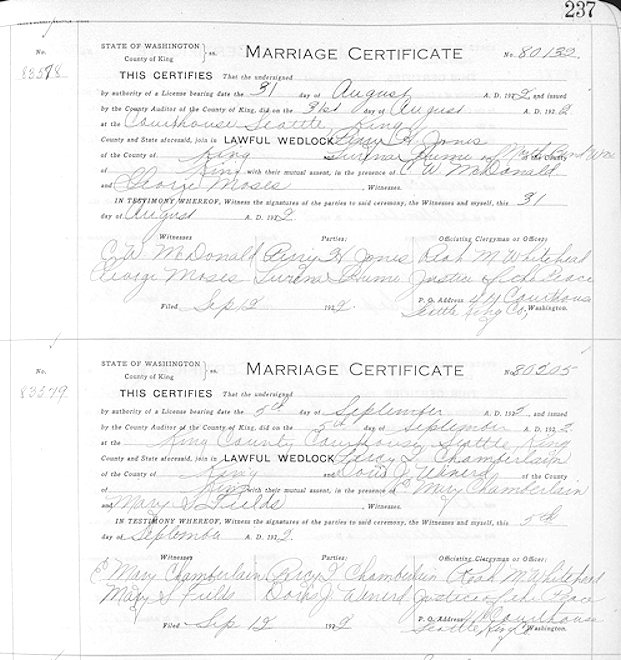 237
No. STATE OF WASHINGTON } ss. MARRIAGE CERTIFICATE No. 80132
83578 County of King
THIS CERTIFIES That the undersigned
by authority of a License bearing date the 31 day of August A. D. 1922 and issued
by the County Auditor of the County of King, did on the 31st day of August A. D. 1922
at the Courthouse Seattle, King
County and State aforesaid, join in LAWFUL WEDLOCK Perry H. Jones
of the County of King and Surena Blume of North Bend Wn of the County
of King with their mutual assent, in the presence of C. W. McDonald
and George Moses , Witnesses.
IN TESTIMONY WHEREOF, Witness the signatures of the parties to said ceremony, the Witnesses and myself, this 31
day of August A. D. 1922.
Witnesses Parties: Officiating Clergyman or Officer:
C. W. McDonald Perry H. Jones Reah M. Whitehead
George Moses Surena Blume Justice of the Peace
P. O. Address Courthouse
Filed Sep 12 1922 Seattle King Co, Washington.
No. STATE OF WASHINGTON } ss. MARRIAGE CERTIFICATE No. 80205
83579 County of King
THIS CERTIFIES That the undersigned
by authority of a License bearing date the 5th day of September A. D. 1922 and issued
by the County Auditor of the County of King, did on the 5th day of September A. D. 1922
at the King County Courthouse, Seattle, King
County and State aforesaid, join in LAWFUL WEDLOCK Percy T. Chamberlain
of the County of King and Doris J. of the County
of King with their mutual assent, in the presence of Mary Chamberlain
and Mary S. Fields , Witnesses.
IN TESTIMONY WHEREOF, Witness the signatures of the parties to said ceremony, the Witnesses and myself, this 5th
day of September A. D. 1922.
Witnesses Parties: Officiating Clergyman or Officer:
Mary Chamberlain Percy T. Chamberlain Reah M. Whitehead
Mary S. Fields Doris J. Justice of the Peace
P. O. Address Courthouse
Filed Sep 12 1922 Seattle, King Co Washington.